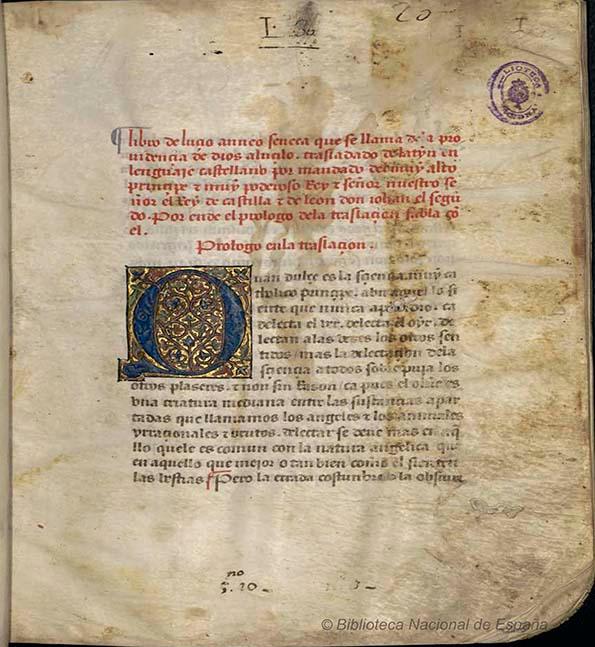 I. 36
20
I
BIBLIOTECA
¶ libro de luçio anneo seneca que se llama de la pro
uidençia de dios a luçilo. trasladado de latyn en
lenguaje castellano por mandado del muy alto
prinçipe τ muy poderoso Rey τ señor nuestro se
ñor el Rey de castilla τ de leon don iohan el segū
do. Por ende el prologo dela traslaçion fabla cō
el.
Prologo enla traslaçion.
Quan dulçe es la sçiençia muy ca
tholico prinçipe. abn aquello si
ente que nunca aprendio. ca
delecta el ver. delecta el oyr. de
lectan alas veses los otros sen
tidos / mas la delectaçion dela
sçiençia a todos sobrepuja los
otros plaseres. τ non sin Rason / ca pues el onbre es
vna criatura mediana entre las sustançias apar
tadas que llamamos los angeles τ los animales
yrraçionales τ brutos. delectar se deue mas en aq̄
llo quele es comun con la natura angelica que
en aquello que mejor o tan bien como el sienten
las bestias Pero la errada costunbre la obscura
no
5. 20
© Biblioteca Nacional de España